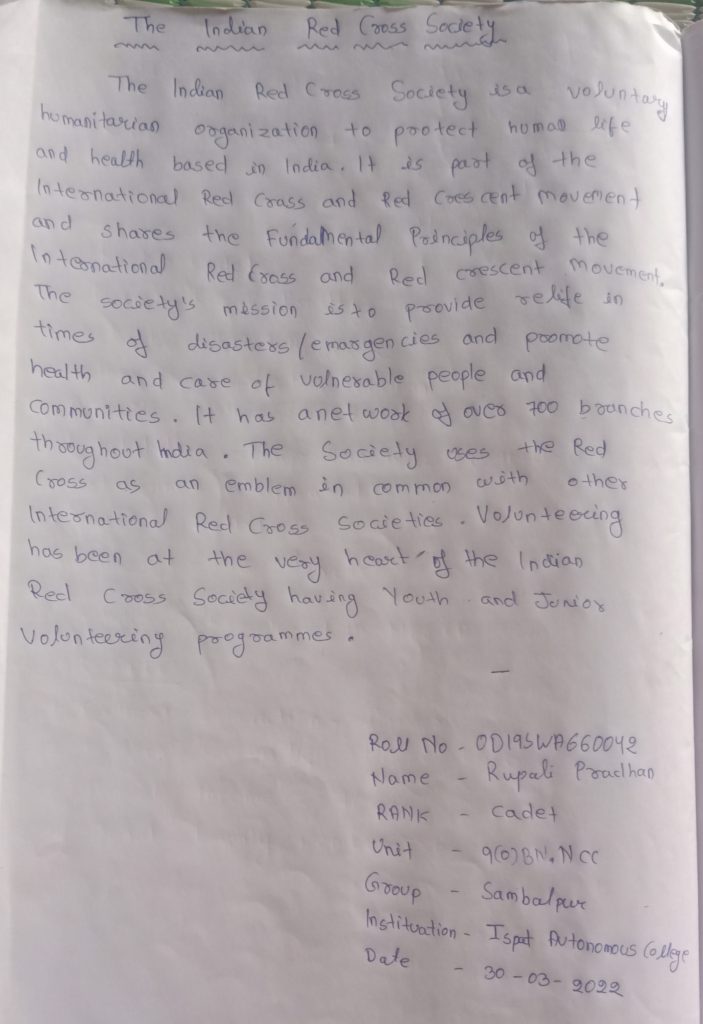 The Indian Red Cross Society
The Indian Red Cross Society is a voluntary
humanitarian organization to protect human life
and health based in India. It is part of the
International Red Crass and Red Crescent movement
and shares the Fundamental Principles of the
International Red Cross and Red crescent movement.
The society's mission is to provide relife in
times of disasters/emargencies and promote
health and care of vulnerable people and
communities. It has a network of over 700 branches
throughout India. The Society uses the Red
Cross as an emblem in common with other
International Red Cross Societies. Volunteering
has been at the very heart of the Indian
Red Cross Society having Youth and Junior
Volunteering programmes.
Roll No - OD19SWA660042
Name - Rupali Pradhan
RANK - Cadet
Unit - 9(O)BN. NCC
Group - Sambalpur
Instituation - Ispat Autonomous College
Date - 30-03-2022